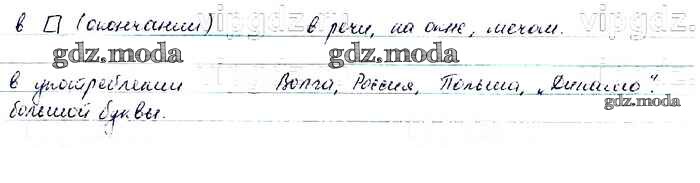 в □ (окончании) в речи, на окне, мечом.
vipgdz.ru
gdz.moda gdz.moda
в употреблении Волга, Россия, Польша, „Динамо".
gdz.moda
большой буквы.